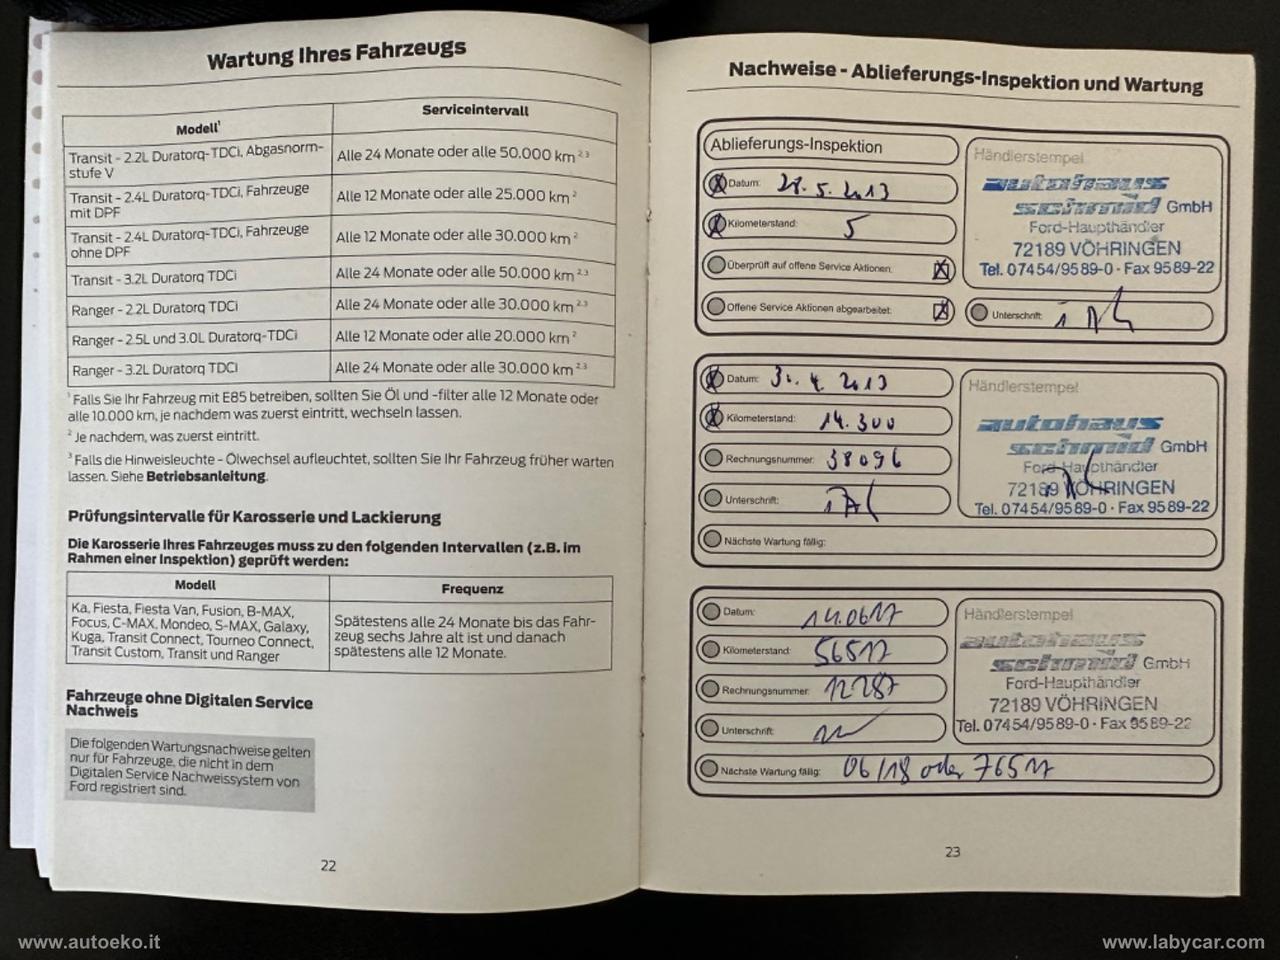 Wartung Ihres Fahrzeugs
Modell¹ Serviceintervall
Transit - 2.2L Duratorq-TDCi, Abgasnorm-
stufe V
Alle 24 Monate oder alle 50.000 km ²,³
Transit - 2.4L Duratorq-TDCi, Fahrzeuge
mit DPF
Alle 12 Monate oder alle 25.000 km ²
Transit - 2.4L Duratorq-TDCi, Fahrzeuge
ohne DPF
Alle 12 Monate oder alle 30.000 km ²
Transit - 3.2L Duratorq TDCi Alle 24 Monate oder alle 50.000 km ²,³
Ranger - 2.2L Duratorq TDCi Alle 24 Monate oder alle 30.000 km ²,³
Ranger - 2.5L und 3.0L Duratorq-TDCi Alle 12 Monate oder alle 20.000 km ²
Ranger - 3.2L Duratorq TDCi Alle 24 Monate oder alle 30.000 km ²,³
¹ Falls Sie Ihr Fahrzeug mit E85 betreiben, sollten Sie Öl und -filter alle 12 Monate oder
alle 10.000 km, je nachdem was zuerst eintritt, wechseln lassen.
² Je nachdem, was zuerst eintritt.
³ Falls die Hinweisleuchte - Ölwechsel aufleuchtet, sollten Sie Ihr Fahrzeug früher warten
lassen. Siehe Betriebsanleitung.
Prüfungsintervalle für Karosserie und Lackierung
Die Karosserie Ihres Fahrzeuges muss zu den folgenden Intervallen (z.B. im
Rahmen einer Inspektion) geprüft werden:
Modell Frequenz
Ka, Fiesta, Fiesta Van, Fusion, B-MAX,
Focus, C-MAX, Mondeo, S-MAX, Galaxy,
Kuga, Transit Connect, Tourneo Connect,
Transit Custom, Transit und Ranger
Spätestens alle 24 Monate bis das Fahr-
zeug sechs Jahre alt ist und danach
spätestens alle 12 Monate.
Fahrzeuge ohne Digitalen Service
Nachweis
Die folgenden Wartungsnachweise gelten
nur für Fahrzeuge, die nicht in dem
Digitalen Service Nachweissystem von
Ford registriert sind.
22
Nachweise - Ablieferungs-Inspektion und Wartung
Ablieferungs-Inspektion
Datum: 28.5.2013
Kilometerstand: 5
Überprüft auf offene Service Aktionen: X
Offene Service Aktionen abgearbeitet: X
Händlerstempel
autohaus
schmid GmbH
Ford-Haupthändler
72189 VÖHRINGEN
Tel. 07454/9589-0 · Fax 9589-22
Unterschrift:
Datum: 4 2013
Kilometerstand: 14.300
Rechnungsnummer: 38096
Unterschrift:
Nächste Wartung fällig:
Händlerstempel
autohaus
schmid GmbH
Ford-Haupthändler
72189 VÖHRINGEN
Tel. 07454/9589-0 · Fax 9589-22
Datum: 14.0617
Kilometerstand: 56517
Rechnungsnummer: 12287
Unterschrift:
Nächste Wartung fällig: 06/18 oder 76517
Händlerstempel
autohaus
schmid GmbH
Ford-Haupthändler
72189 VÖHRINGEN
Tel. 07454/9589-0 · Fax 9589-22
23
www.autoeko.it
www.labycar.com